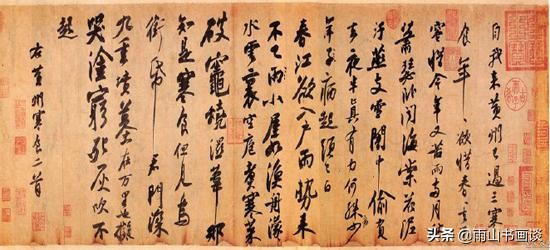 自我來黃州已過三寒
食年年欲惜春春去不
容惜今年又苦雨兩月秋
蕭瑟臥聞海棠花泥
汙燕支雪闇中偷負
去夜半真有力何殊少
年子病起頭已白
春江欲入戶雨勢來
不已雨小屋如漁舟濛濛
水雲裏空庖煮寒菜
破竈燒濕葦那
知是寒食但見烏
銜帋君門深
九重墳墓在萬里也擬
哭塗窮死灰吹不
起
右黃州寒食二首
@雨山书画谈